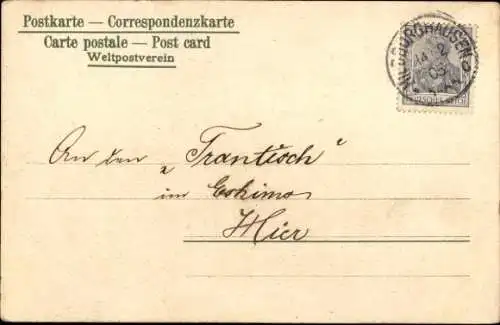 Postkarte — Correspondenzkarte
Carte postale — Post card
Weltpostverein
HILDBURGHAUSEN
14 2
An den „Frantisch"
im Eskimo
Hier